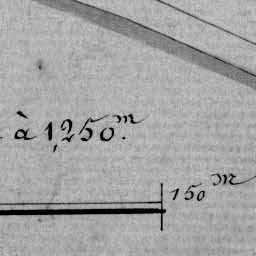 à 1,250.m
150 m